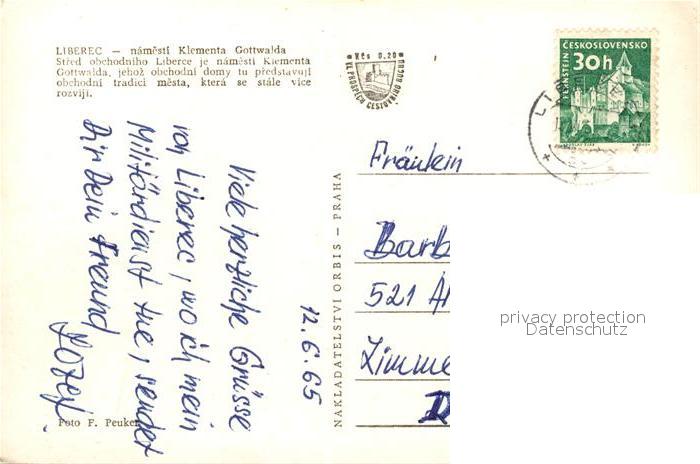 LIBEREC — náměstí Klementa Gottwalda
Střed obchodního Liberce je náměstí Klementa
Gottwalda, jehož obchodní domy tu představují
obchodní tradici města, která se stále více
rozvíjí.
Kčs 0.20
VE PROSPĚCH CESTOVNÍHO RUCHU
ČESKOSLOVENSKO
30h
PERNŠTEJN
Viele herzliche Grüsse
von Liberec, wo ich mein
Militärdienst tue, sendet
Dir Dein Freund
Jozef.
12.6.65
NAKLADATELSTVÍ ORBIS — PRAHA
Fräulein
Barb
521
Zimme
privacy protection
Datenschutz
Foto F. Peuker